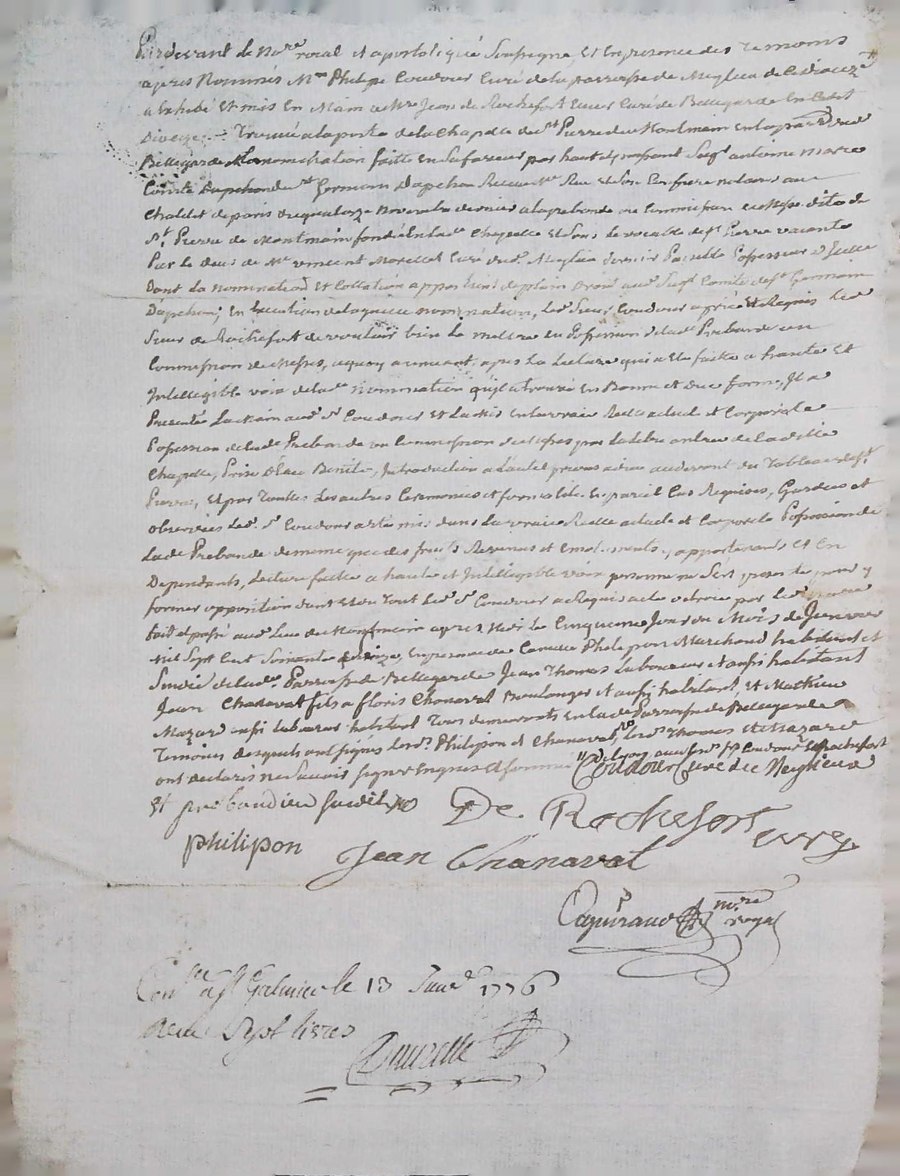 Pardevant le No.re royal et apostolique Soussigné, Et En presence des Temoins
apres Nommés M.re Philipe Coudour Curé de la parroisse de Meylieu de Ce dioceze
a Exhibé Et mis En Main a M.re Jean de Rochefort aussi Curé de Bellegarde En Cedit
Dioceze Trouvé a la porte de la Chapelle de S.t Pierre de Montmain En la parroisse de
Bellegarde la nomination faitte En sa faveur par haut et puissant Seig.r antoine marie
Comte Dapchon de S.t Germain Dapchon Recue M.e et Son Confrere notaires au
Chatelet de paris du quatorze Novembre dernier a la prebande ou Commission de Messes dite de
S.t Pierre de Montmain fondé En lad.e Chapelle Et Sous le vocable de S.t Pierre vacante
Par le deces de M.e vincent Morellet Curé dud. Meylieu dernier Paisible Possesseur d'Icelle
Dont la nomination Et Collation appartient de plein droit aud. Seig.r Comte de S.t Germain
Dapchon; En Execution de laquelle nomination, led. Sieur Coudour a prié Et Requis led.
Sieur de Rochefort de vouloir bien le mettre En Possession de lad.e Prebande ou
Commission de Messes, a quoy acquiesçant, apres la Lecture qui a Eté faitte a haute Et
Intelligible voix de lad.e nomination qu'il a trouvé En Bonne et due forme, Il a
Presenté La Main aud. S.r Coudour Et La Mis En la vraie Reelle actuelle et Corporelle
Possession de lad.e Prebande ou Commission de Messes par La libre entrée de La ditte
Chapelle, Prise D'Eau Benite, Introduction a L'autel prieres a dieu au devant du Tableau de S.t
Pierre, Et par Touttes Les autres Ceremonies et formes En pareil Cas Requises, Gardées et
observées Led. S.r Coudour a été mis dans La vraie Reelle actuelle et Corporelle Possession de
La d.e Prebande de meme que des fruits Revenus et Emoluments, y appartenants Et En
Dependants, Lecture faitte a haute et Intelligible voix personne ne s'est presenté pour y
former opposition dont Et du Tout Led. S.r Coudour a Requis acte octroyé par Led.
fait et passé aud. Lieu de Montmain apres Midi le Cinquieme Jour du Mois de Janvier
mil Sept Cent Soixante Seize, En presence de Philipon Marchand habitant et
Sindic de lad.e Parroisse de Bellegarde Jean Thomas Laboureur et aussi habitant
Jean Chanaval fils a fleuris Chanaval Boulanger Et aussi habitant, Et Mathieu
Mazard aussi Laboureur habitant Tous demeurants En lad.e Parroisse de Bellegarde
Temoins desquels ont signés lesd. Philipon et Chanaval, lesd. Thomas et Mazard
ont declaré ne Savoir signer Enquis et Sommés Coudour Curé de Meylieux
Et prebandier susdit
De Rochefort curé
philipon
Jean Chanaval
no.re royal
Con.lé a S.t Galmier le 13 Janv.r 1776
Reçu Sept livres